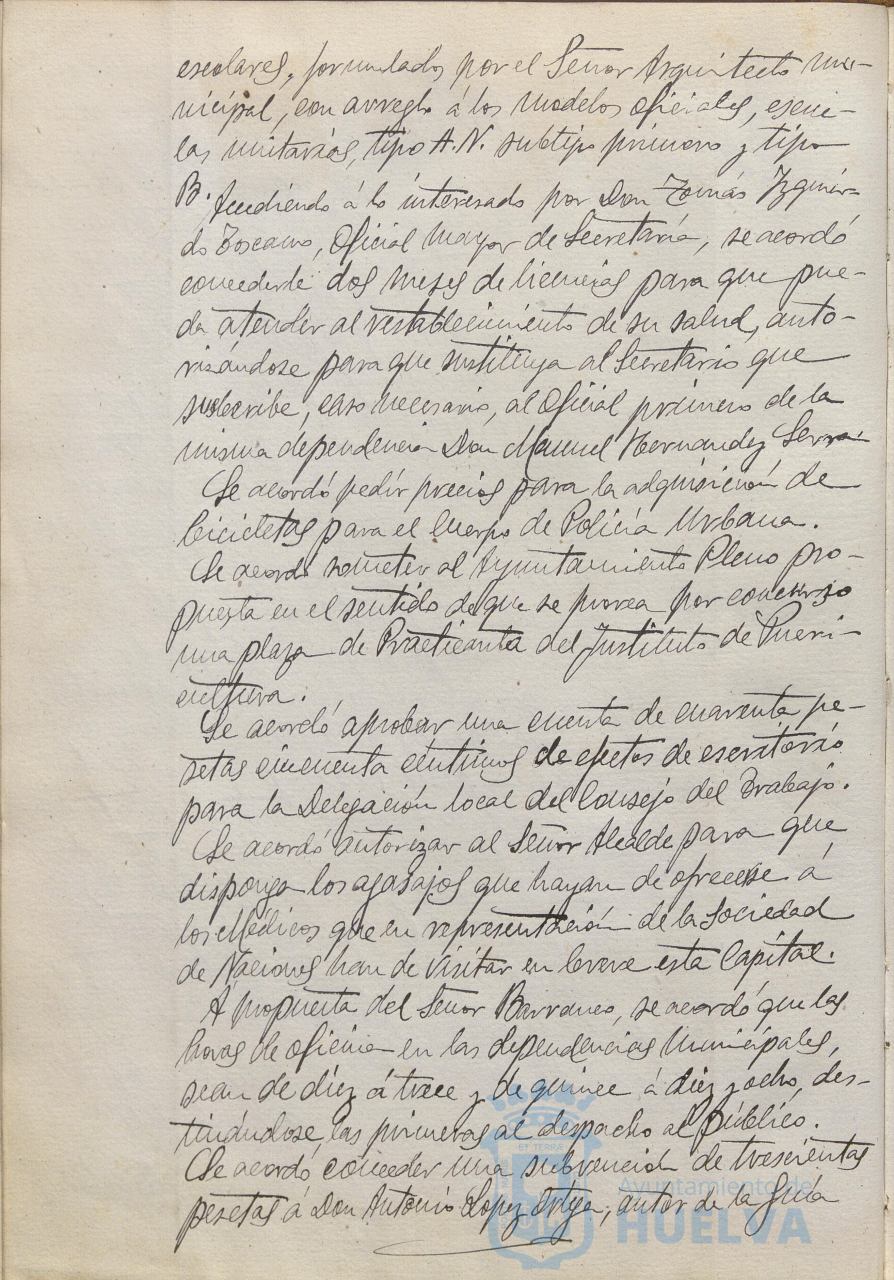 escolares, formulados por el Señor Arquitecto mu-
nicipal, con arreglo á los modelos oficiales, escue-
las unitarias, tipo A.N. subtipo primero y tipo
B.
Accediendo á lo interesado por Don Tomás Izquier-
do Toscano, Oficial Mayor de Secretaría, se acordó
concederle dos meses de licencias para que pue-
da atender al restablecimiento de su salud, auto-
rizándose para que sustituya al Secretario que
suscribe, caso necesario, al Oficial primero de la
misma dependencia Don Manuel Hernandez Serra
Se acordó pedir precios para la adquisición de
bicicletas para el Cuerpo de Policía Urbana.
Se acordó someter al Ayuntamiento Pleno pro-
puesta en el sentido de que se provea por concurso
una plaza de Practicanta del Instituto de Pueri-
cultura.
Se acordó aprobar una cuenta de cuarenta pe-
setas cincuenta céntimos de efectos de escritorio
para la Delegación local del Consejo del Trabajo.
Se acordó autorizar al Señor Alcalde para que
disponga los agasajos que hayan de ofrecerse á
los Médicos que en representación de la Sociedad
de Naciones han de visitar en breve esta Capital.
A propuesta del Señor Barranco, se acordó que las
horas de oficina en las dependencias municipales,
sean de diez á trece y de quince á diez y ocho, des-
tinándose las primeras al despacho al público.
Se acordó conceder una subvención de trescientas
pesetas á Don Antonio Lopez Ortega, autor de la Guía
Ayuntamiento de
HUELVA